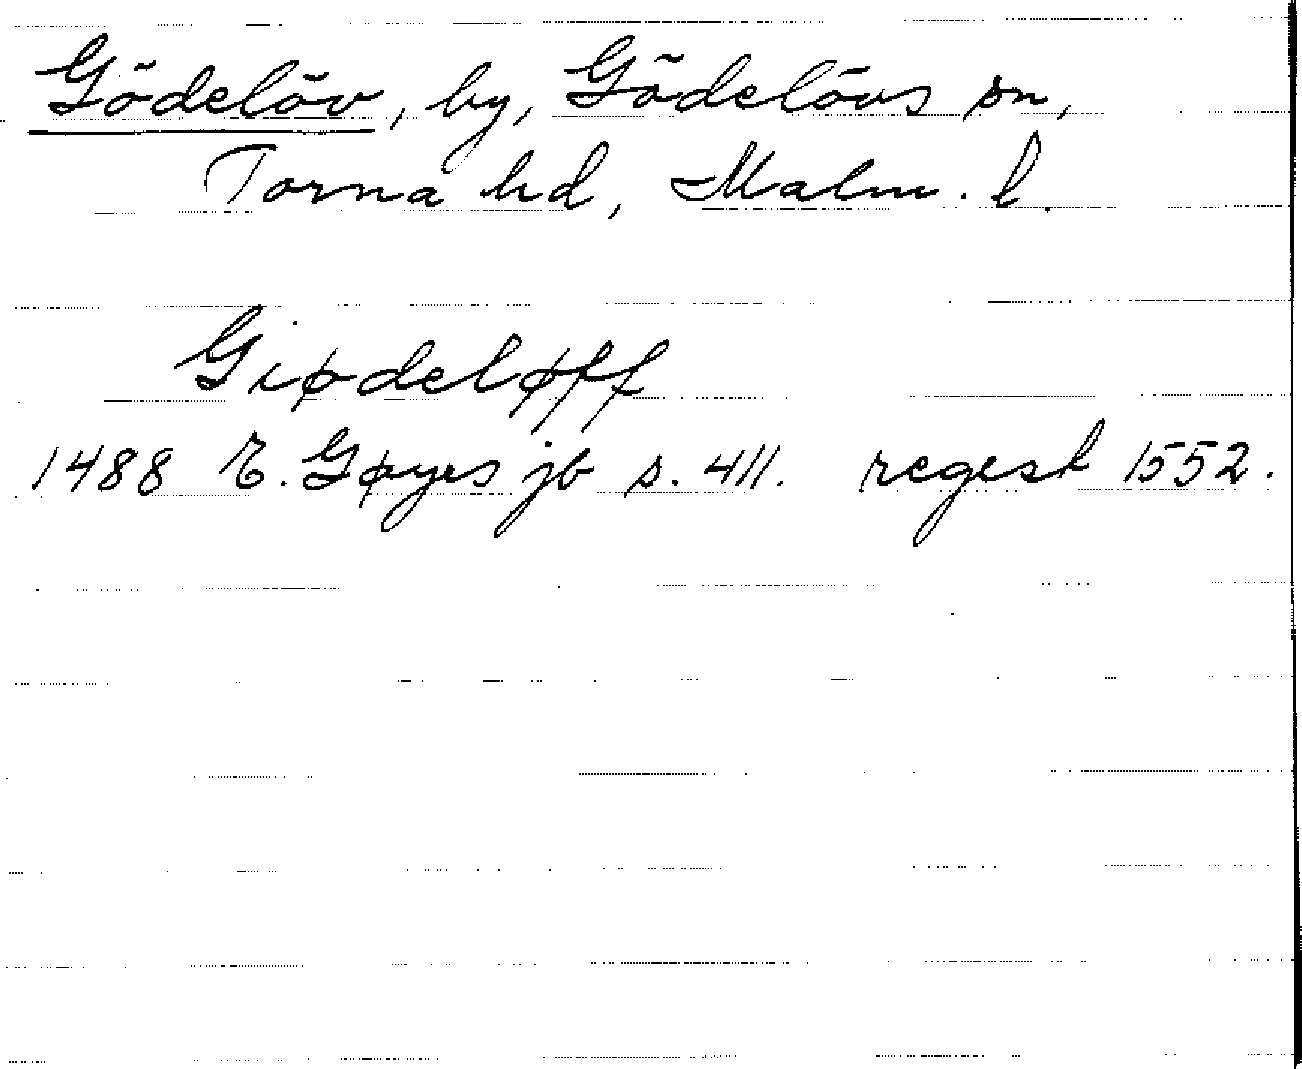 Gödelöv, by, Gödelövs sn,
Torna hd, Malm. l.
Giødeløff
1488 E. Gøyes jb s. 411. regest 1552.